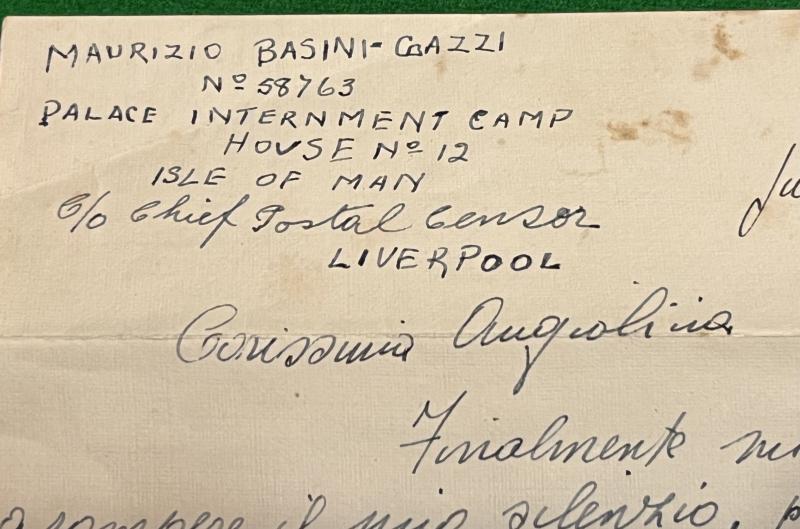 MAURIZIO BASINI-GAZZI
Nº 58763
PALACE INTERNMENT CAMP
HOUSE Nº 12
ISLE OF MAN
C/o Chief Postal Censor
LIVERPOOL
Carissima Angiolina
Finalmente
rompere il mio silenzio,